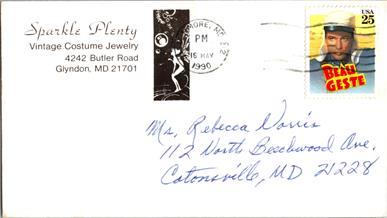 Sparkle Plenty
Vintage Costume Jewelry
4242 Butler Road
Glyndon, MD 21701
MORE, MD
PM
15 MAY
1990
USA
25
BEAU
GESTE
Ms. Rebecca Norris
112 North Beechwood Ave.
Catonsville, MD 21228